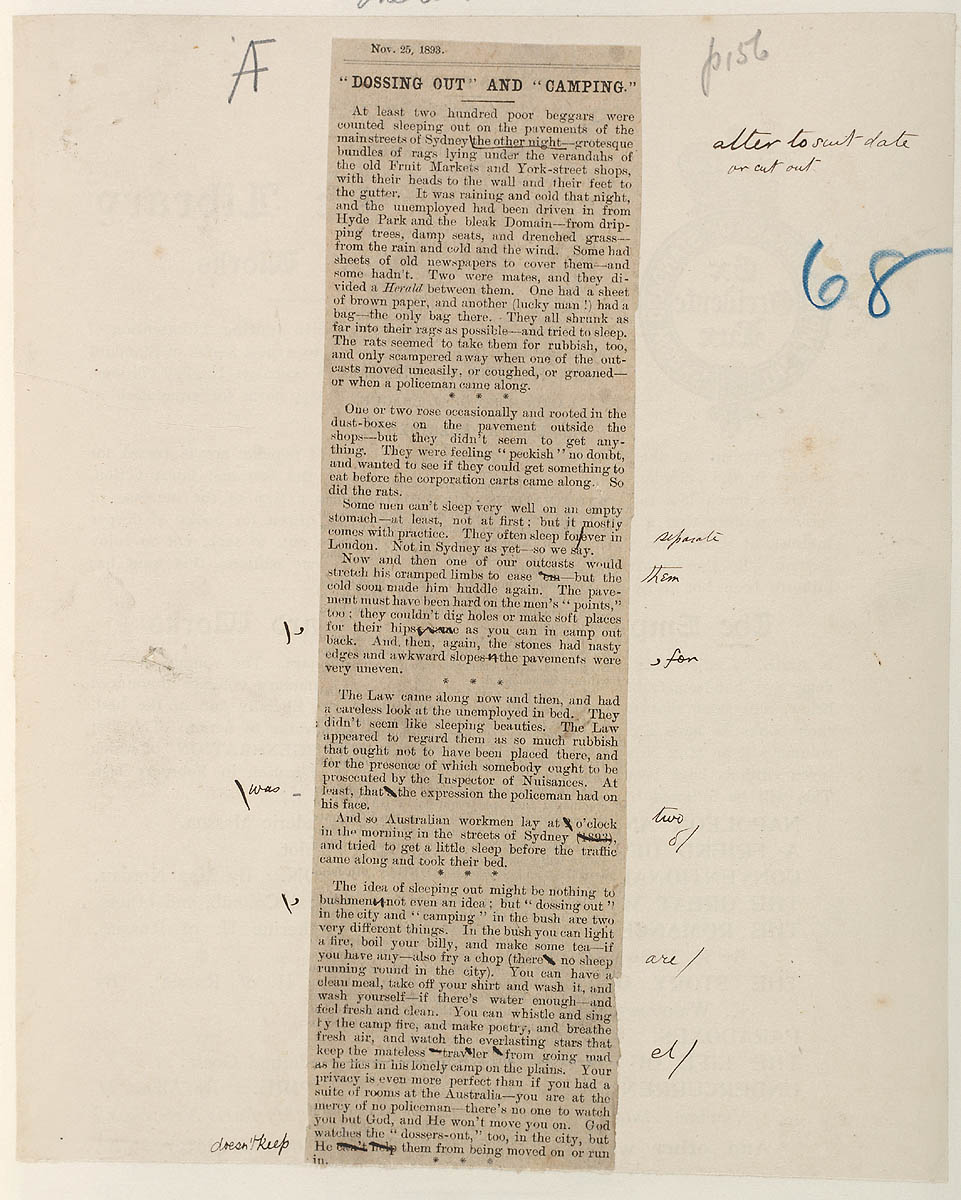 A
p156
Nov. 25, 1893.
"DOSSING OUT" AND "CAMPING."
At least two hundred poor beggars were
counted sleeping out on the pavements of the
mainstreets of Sydney the other night—grotesque
bundles of rags lying under the verandahs of
the old Fruit Markets and York-street shops,
with their heads to the wall and their feet to
the gutter. It was raining and cold that night,
and the unemployed had been driven in from
Hyde Park and the bleak Domain—from drip-
ping trees, damp seats, and drenched grass—
from the rain and cold and the wind. Some had
sheets of old newspapers to cover them—and
some hadn't. Two were mates, and they di-
vided a Herald between them. One had a sheet
of brown paper, and another (lucky man!) had a
bag—the only bag there. They all shrunk as
far into their rags as possible—and tried to sleep.
The rats seemed to take them for rubbish, too,
and only scampered away when one of the out-
casts moved uneasily, or coughed, or groaned—
or when a policeman came along.
* * *
One or two rose occasionally and rooted in the
dust-boxes on the pavement outside the
shops—but they didn't seem to get any-
thing. They were feeling "peckish" no doubt,
and wanted to see if they could get something to
eat before the corporation carts came along. So
did the rats.
Some men can't sleep very well on an empty
stomach—at least, not at first; but it mostly
comes with practice. They often sleep for/ever in
London. Not in Sydney as yet—so we say.
Now and then one of our outcasts would
stretch his cramped limbs to ease 'em—but the
cold soon made him huddle again. The pave-
ment must have been hard on the men's "points,"
too; they couldn't dig holes or make soft places
for their hips as you can in camp out
back. And, then, again, the stones had nasty
edges and awkward slopes the pavements were
very uneven.
* * *
The Law came along now and then, and had
a careless look at the unemployed in bed. They
didn't seem like sleeping beauties. The Law
appeared to regard them as so much rubbish
that ought not to have been placed there, and
for the presence of which somebody ought to be
prosecuted by the Inspector of Nuisances. At
least, that the expression the policeman had on
his face.
And so Australian workmen lay at o'clock
in the morning in the streets of Sydney (1893),
and tried to get a little sleep before the traffic
came along and took their bed.
* * *
The idea of sleeping out might be nothing to
bushmen not even an idea; but "dossing out"
in the city and "camping" in the bush are two
very different things. In the bush you can light
a fire, boil your billy, and make some tea—if
you have any—also fry a chop (there no sheep
running round in the city). You can have a
clean meal, take off your shirt and wash it, and
wash yourself—if there's water enough—and
feel fresh and clean. You can whistle and sing
by the camp fire, and make poetry, and breathe
fresh air, and watch the everlasting stars that
keep the mateless trav ler from going mad
as he lies in his lonely camp on the plains. Your
privacy is even more perfect than if you had a
suite of rooms at the Australia—you are at the
mercy of no policeman—there's no one to watch
you but God, and He won't move you on. God
watches the "dossers-out," too, in the city, but
He can't help them from being moved on or run
in.
* * *
alter to suit date
or cut out
68
separate
them
, for
was
two
are/
el/
doesn't keep